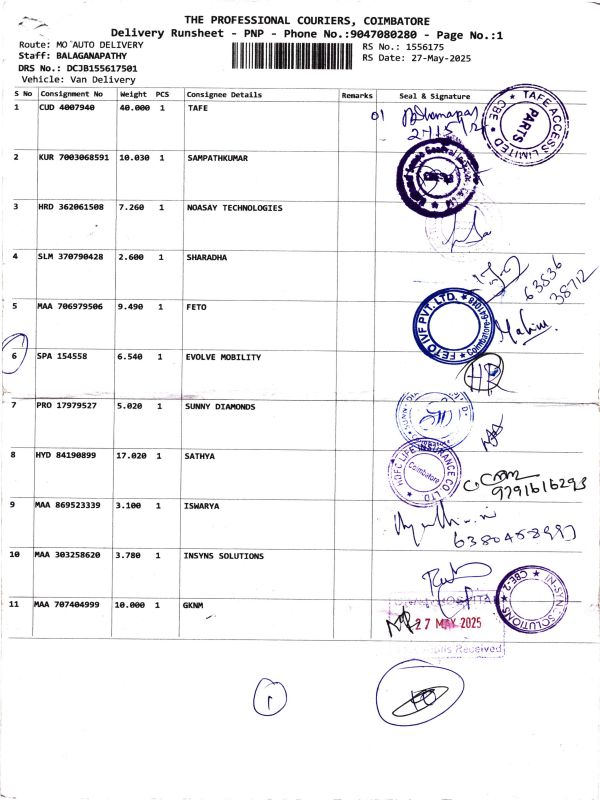 THE PROFESSIONAL COURIERS, COIMBATORE
Delivery Runsheet - PNP - Phone No.:9047080280 - Page No.:1
Route: MO AUTO DELIVERY
RS No.: 1556175
Staff: BALAGANAPATHY
RS Date: 27-May-2025
DRS No.: DCJB155617501
Vehicle: Van Delivery
S No Consignment No Weight PCS Consignee Details Remarks Seal & Signature
1 CUD 4007940 40.000 1 TAFE
01
TAFE ACCESS LIMITED CBE
PARTS
2 KUR 7003068591 10.030 1 SAMPATHKUMAR
3 HRD 362061508 7.260 1 NOASAY TECHNOLOGIES
4 SLM 370790428 2.600 1 SHARADHA
63836
38712
5 MAA 706979506 9.490 1 FETO
FETO IVF PVT. LTD. Coimbatore-641018
6 SPA 154558 6.540 1 EVOLVE MOBILITY
7 PRO 17979527 5.020 1 SUNNY DIAMONDS
8 HYD 84190899 17.020 1 SATHYA
HDFC LIFE INSURANCE CO LTD
Coimbatore
9791616293
9 MAA 869523339 3.100 1 ISWARYA
10 MAA 303258620 3.780 1 INSYNS SOLUTIONS
IN-SYN SOLUTIONS CBE-2
11 MAA 707404999 10.000 1 GKNM
HOSPITAL
27 MAY 2025
Received
1
10